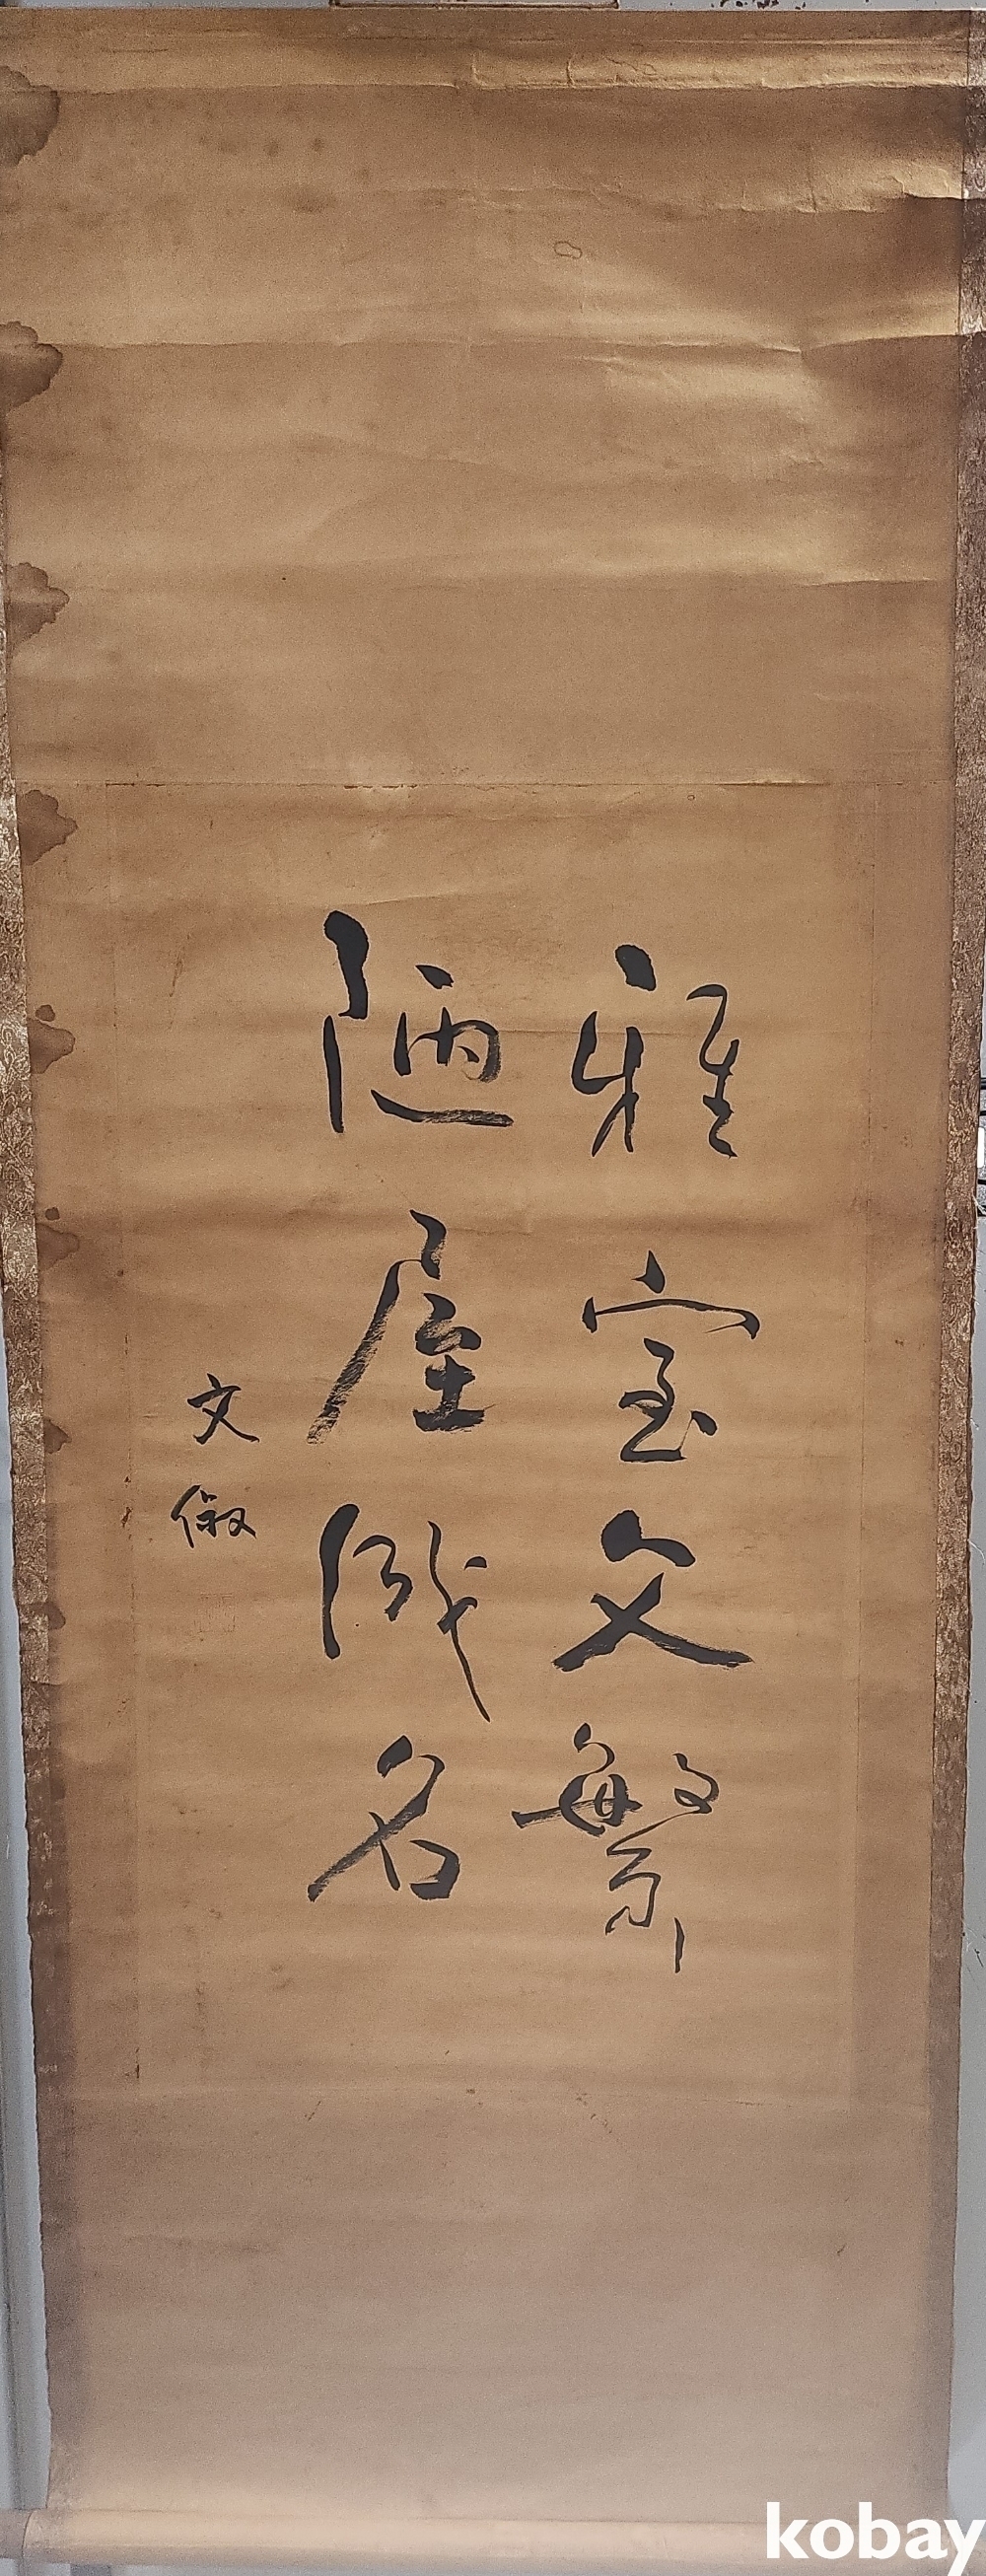 雅室文繁
陋屋洩名
文俶
kobay